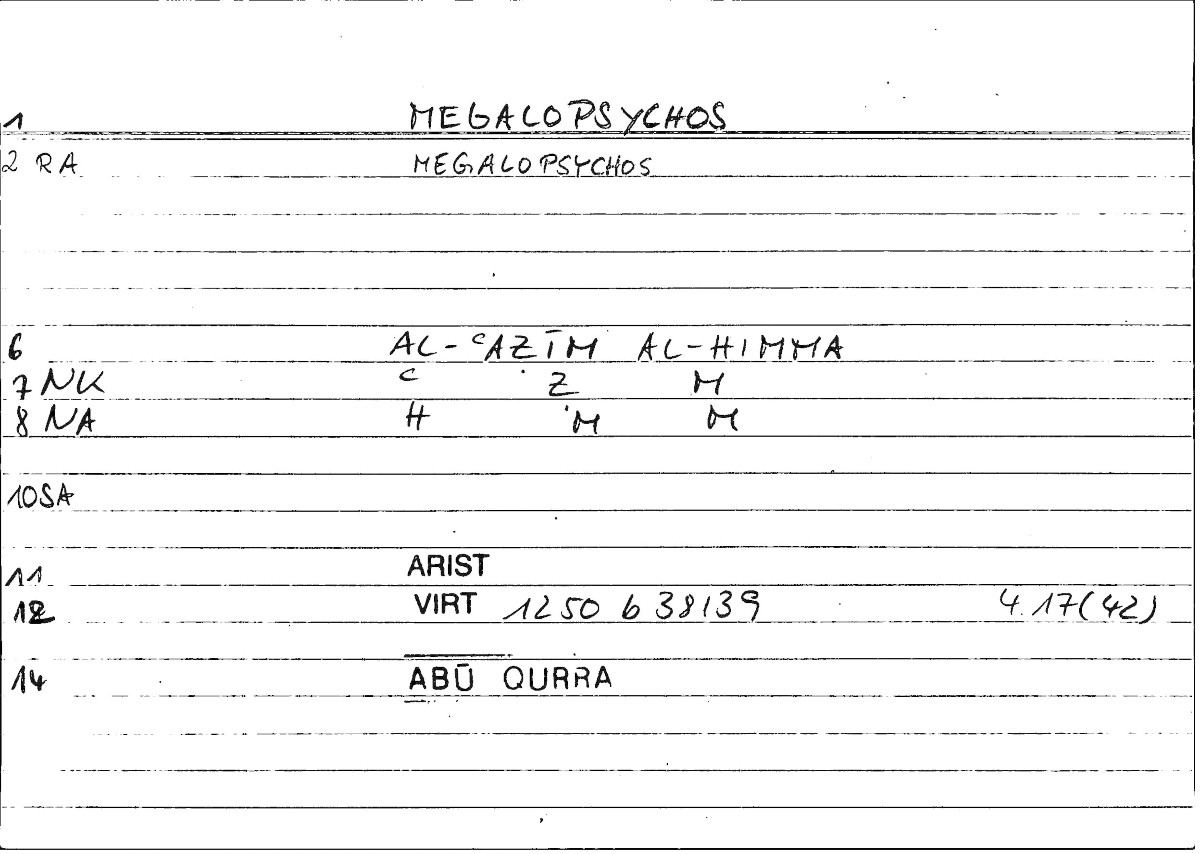 1 MEGALOPSYCHOS
2 RA MEGALOPSYCHOS
6 AL-ʿAẒĪM AL-HIMMA
7 NK ʿ Ẓ M
8 NA H M M
10 SA
11 ARIST
12 VIRT 1250 b 38/39 4.17(42)
14 ABŪ QURRA